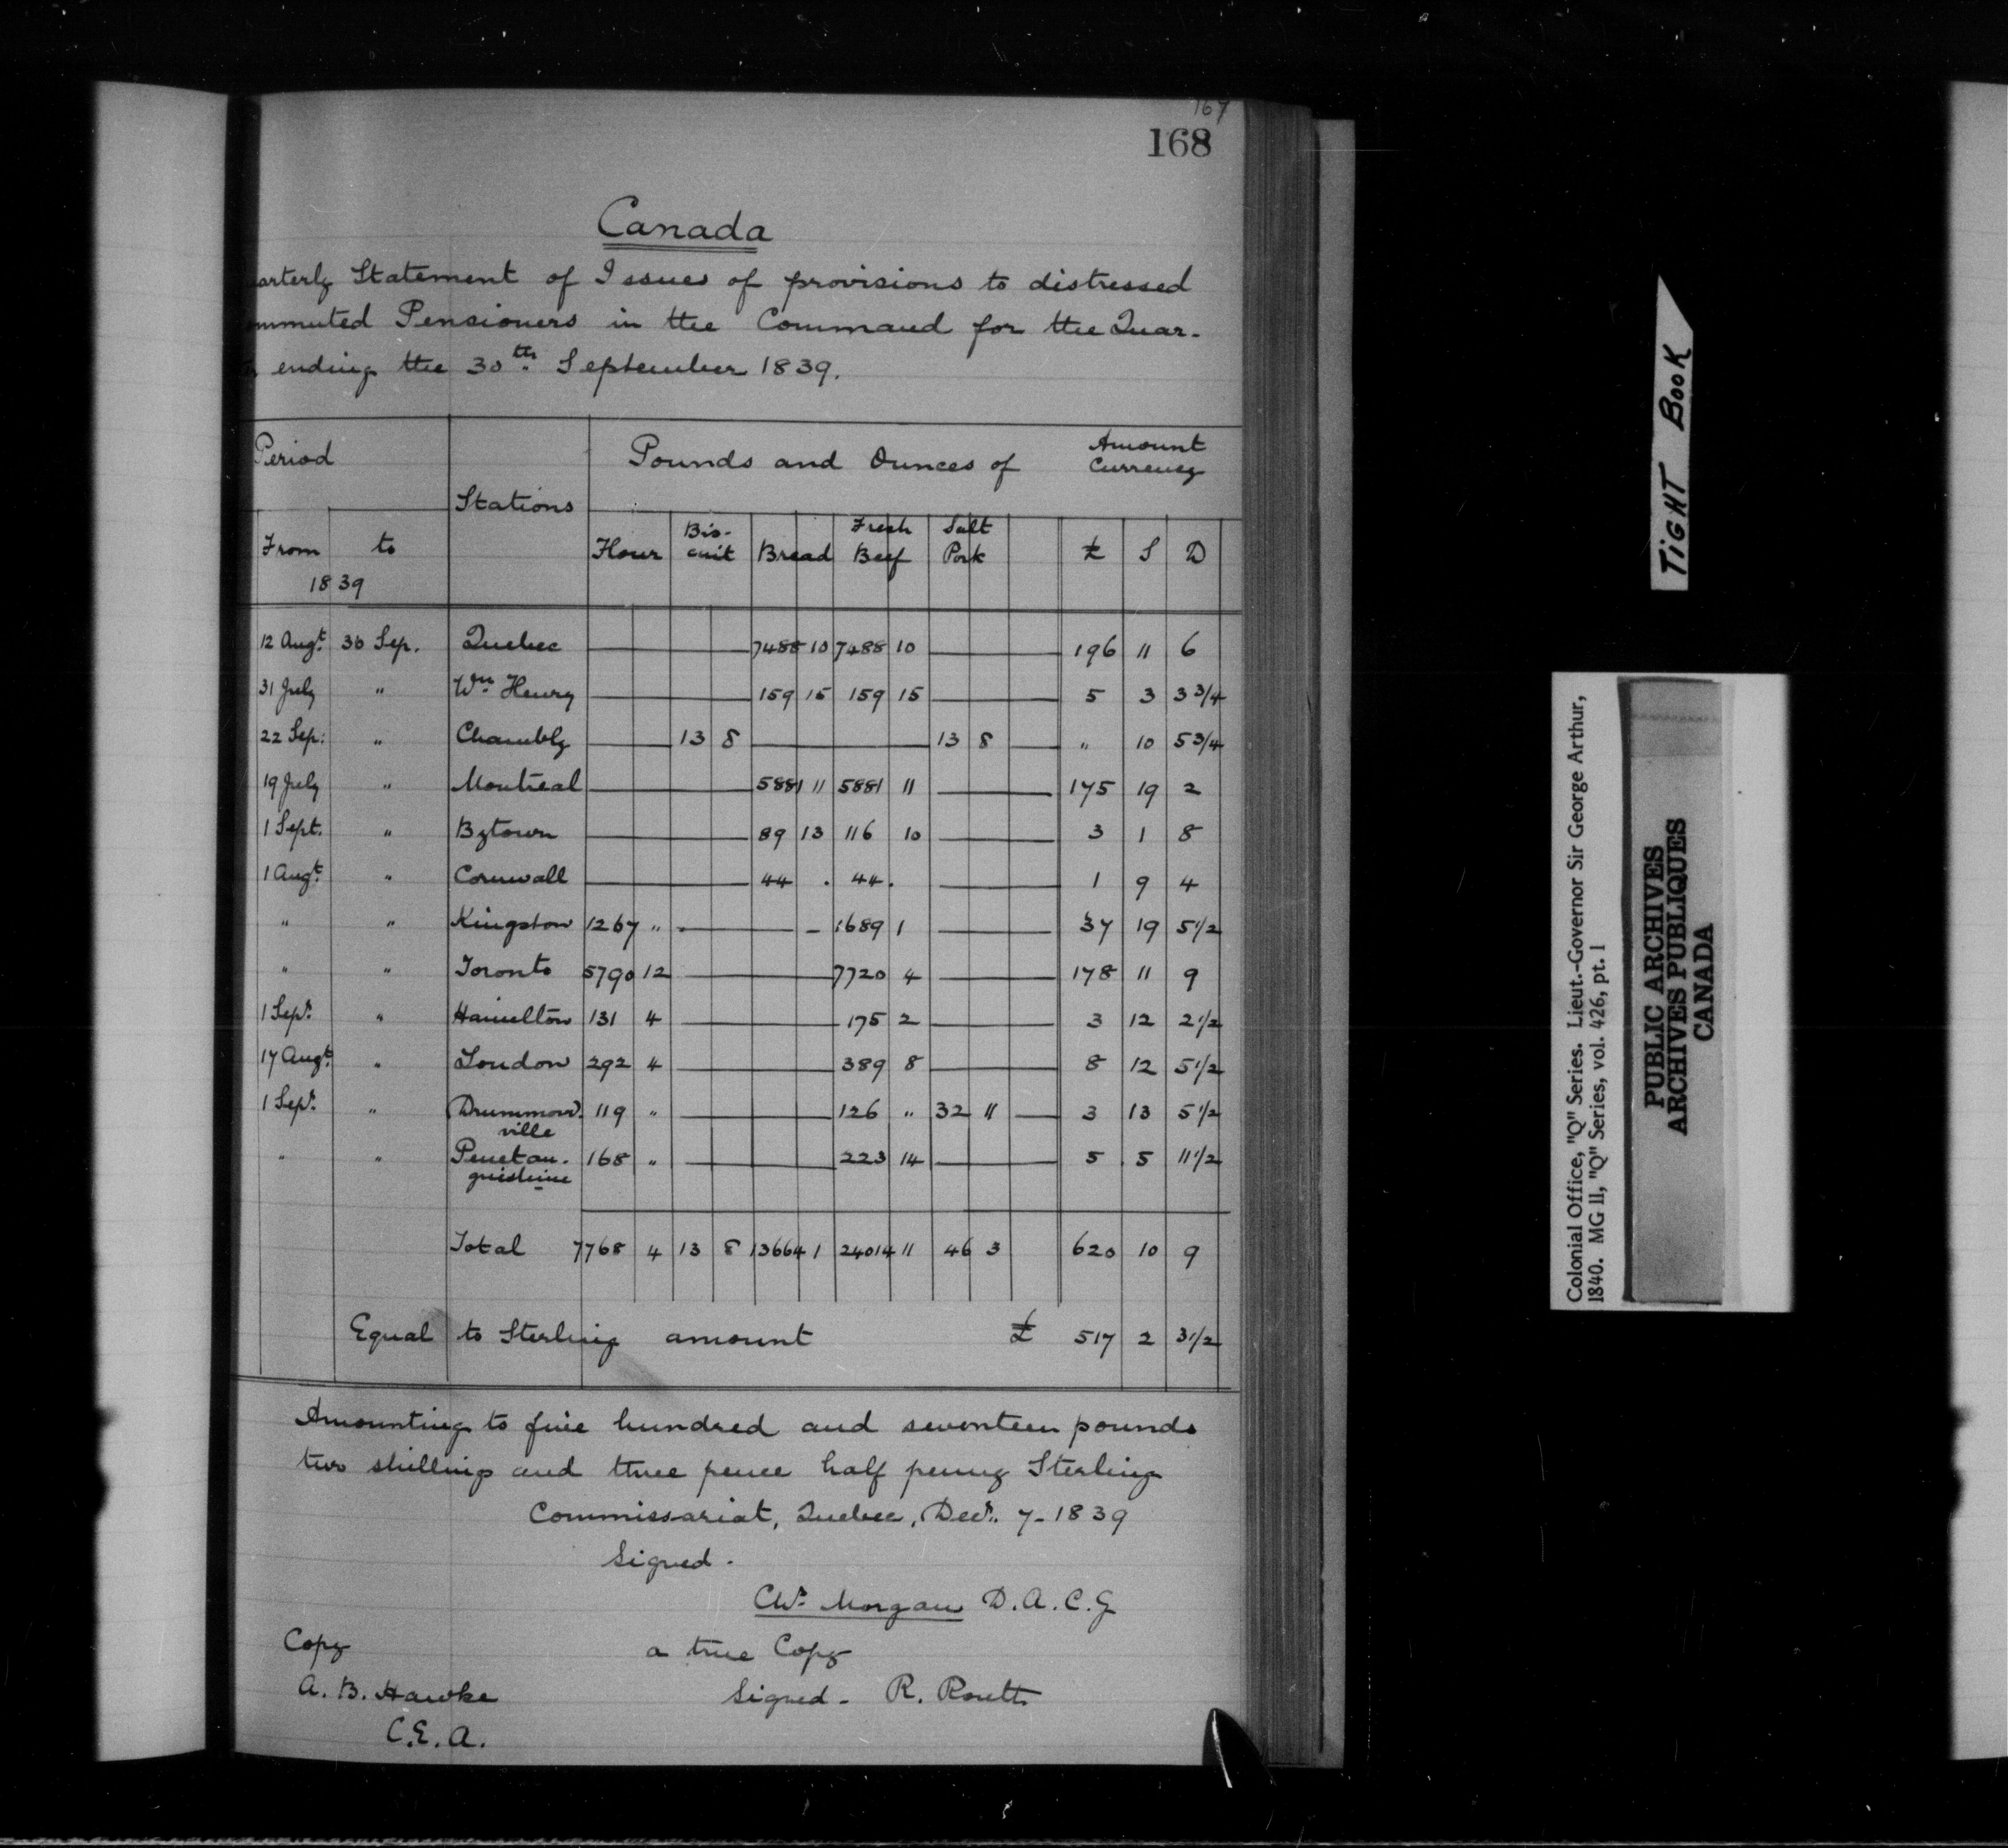 167
168
Canada
arterly Statement of Issues of provisions to distressed
ommuted Pensioners in the Command for the Quar-
ending the 30th September 1839.
Period Stations Pounds and Ounces of Amount Currency
From to Flour Bis-cuit Bread Fresh Beef Salt Pork £ S D
1839
12 Augt. 30 Sep. Quebec 7488 10 7488 10 196 11 6
31 July " Wm Henry 159 15 159 15 5 3 3 3/4
22 Sep: " Chambly 13 8 13 8 " 10 5 3/4
19 July " Montreal 5881 11 5881 11 175 19 2
1 Sept. " Bytown 89 13 116 10 3 1 8
1 Augt. " Cornwall 44 . 44 . 1 9 4
" " Kingston 1267 " 1689 1 37 19 5 1/2
" " Toronto 5790 12 7720 4 178 11 9
1 Sepr. " Hamilton 131 4 175 2 3 12 2 1/2
17 Augt. " London 292 4 389 8 8 12 5 1/2
1 Sepr. " Drummond- 119 " 126 " 32 11 3 13 5 1/2
ville
" " Penetan- 168 " 223 14 5 5 11 1/2
guishine
Total 7768 4 13 8 13664 1 24014 11 46 3 620 10 9
Equal to Sterling amount £ 517 2 3 1/2
Amounting to five hundred and seventeen pounds
two shillings and three pence half penny Sterling
Commissariat, Quebec, Decr. 7-1839
Signed -
Chr. Morgan D.A.C.G
Copy a true Copy
A. B. Hawke Signed - R. Routh
C.E.A.
TIGHT BOOK
Colonial Office, "Q" Series. Lieut.-Governor Sir George Arthur,
1840. MG 11, "Q" Series, vol. 426, pt. 1
PUBLIC ARCHIVES
ARCHIVES PUBLIQUES
CANADA